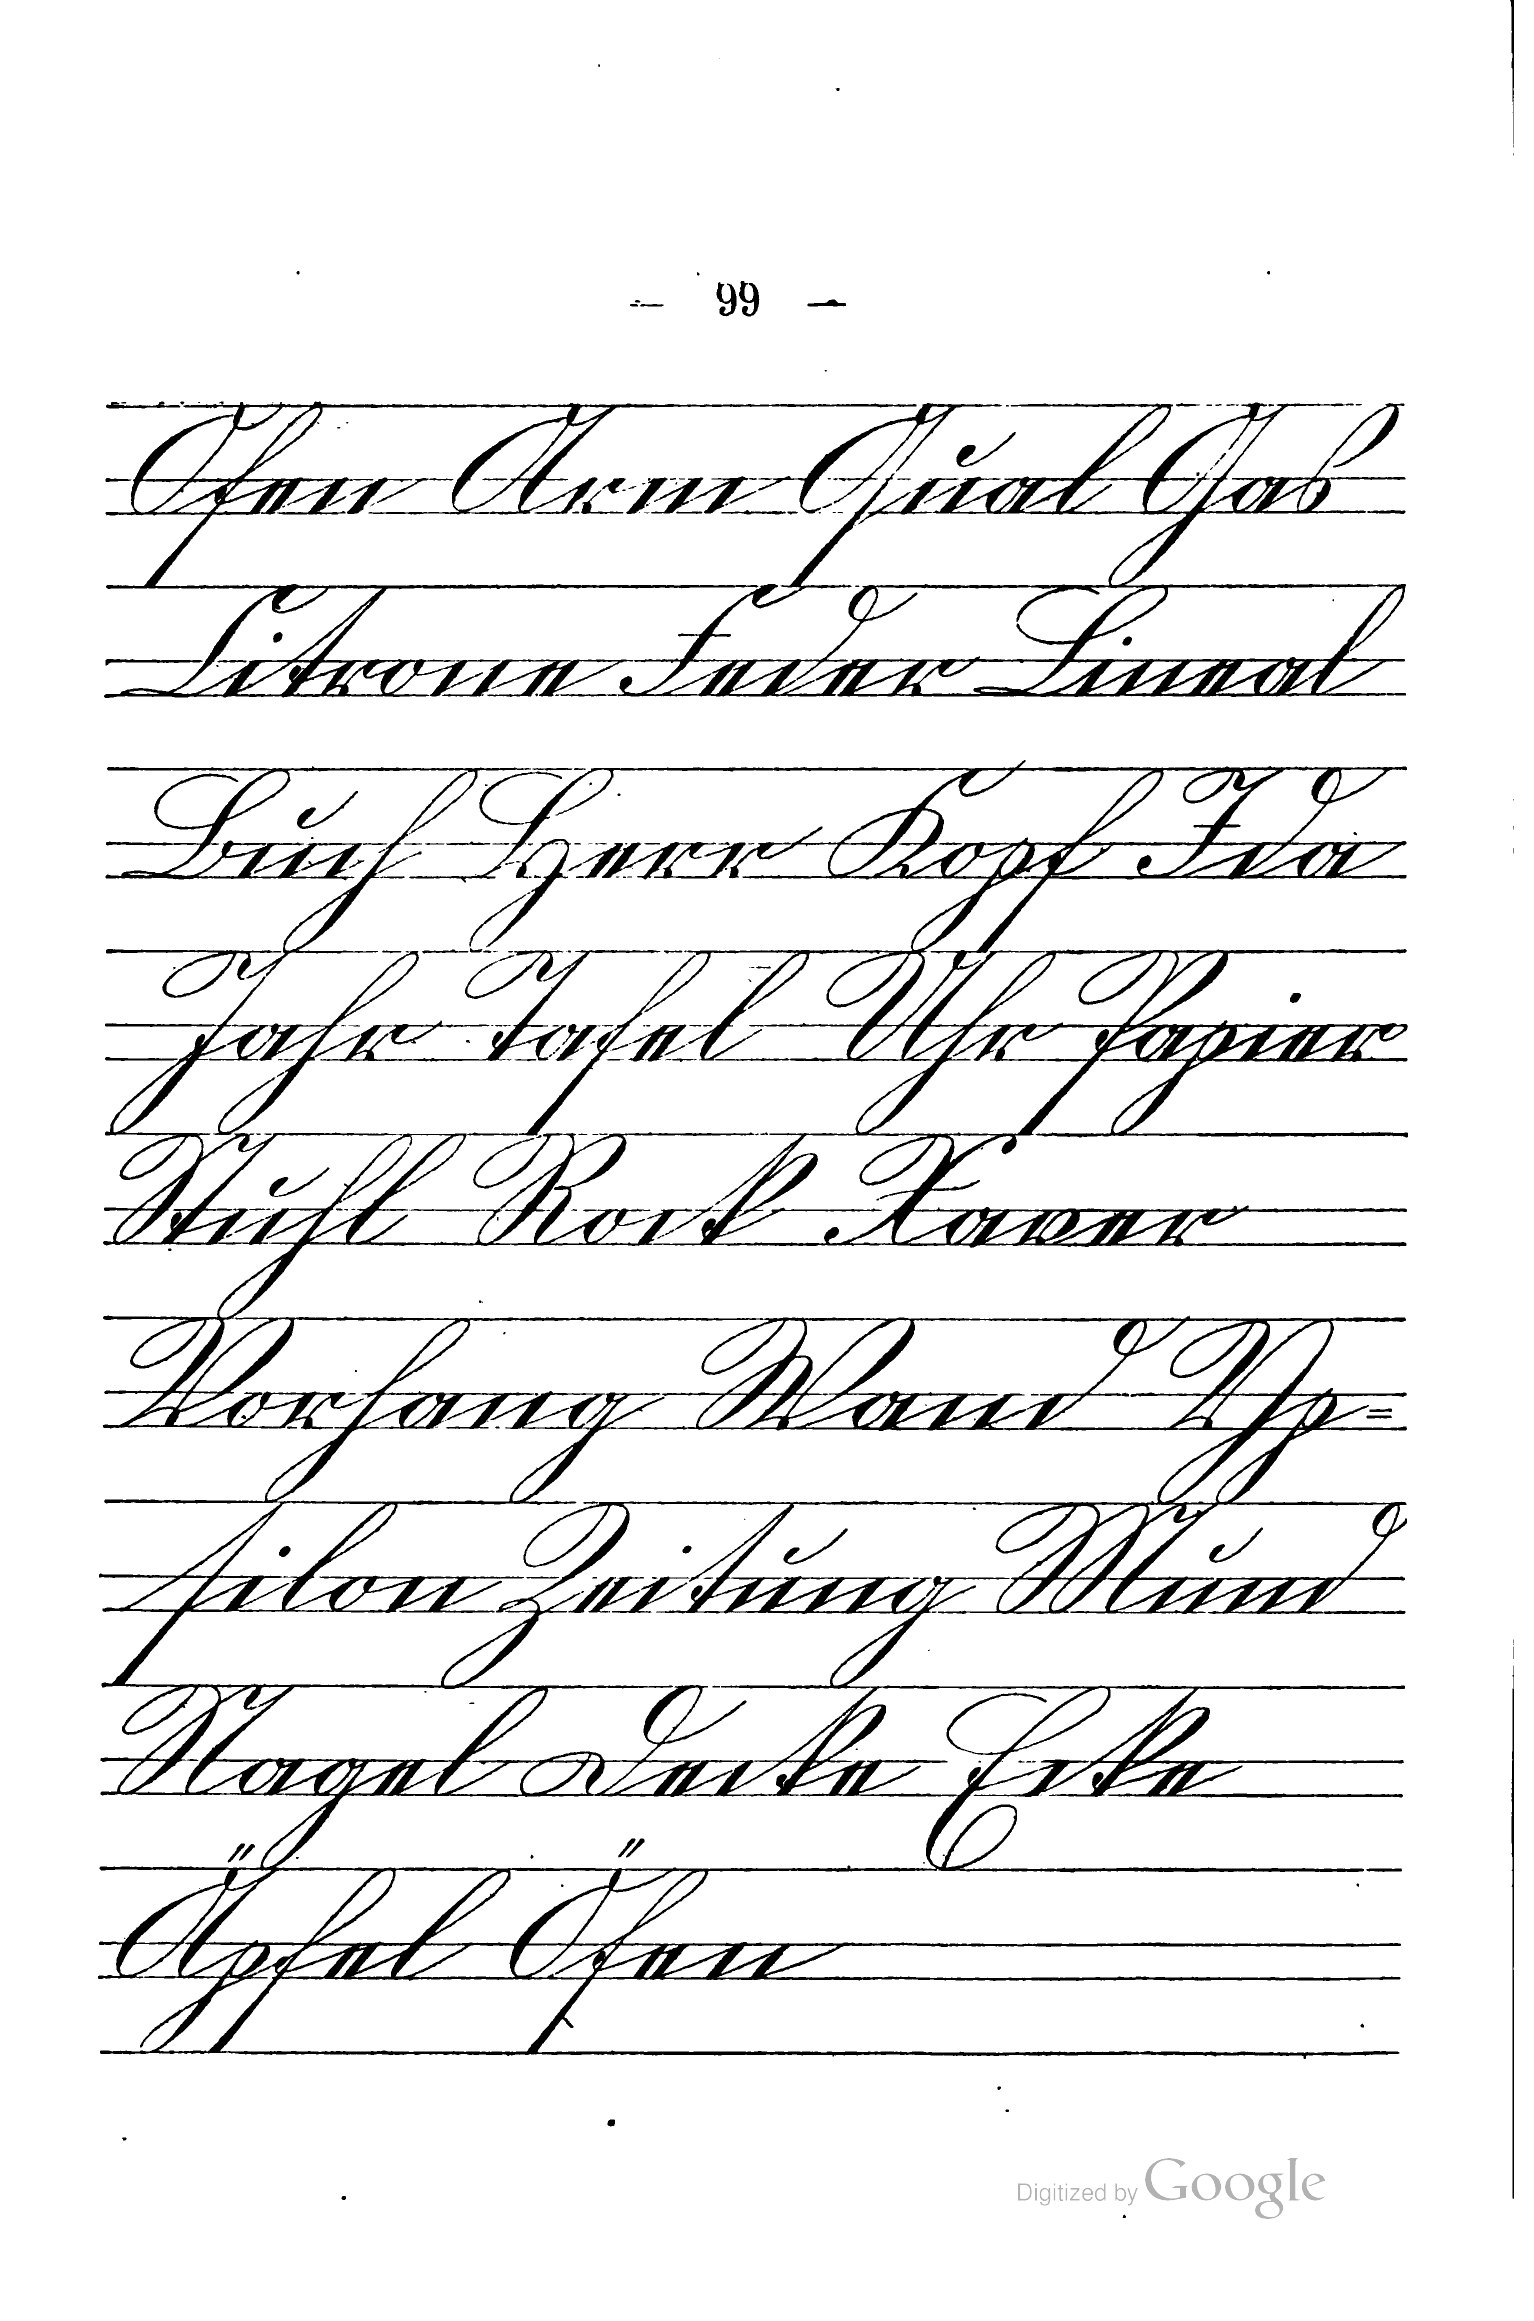 — 99 —
Ofen Arm Qual Gas
Citrone Feder Lineal
Buch Herr Kopf Ida
Jahr Tafel Uhr Papier
Stuhl Rock Xaver
Vorhang Wand Yp=
silon Zeitung Mund
Nagel Decke Ecke
Äpfel Öfen
Digitized by Google